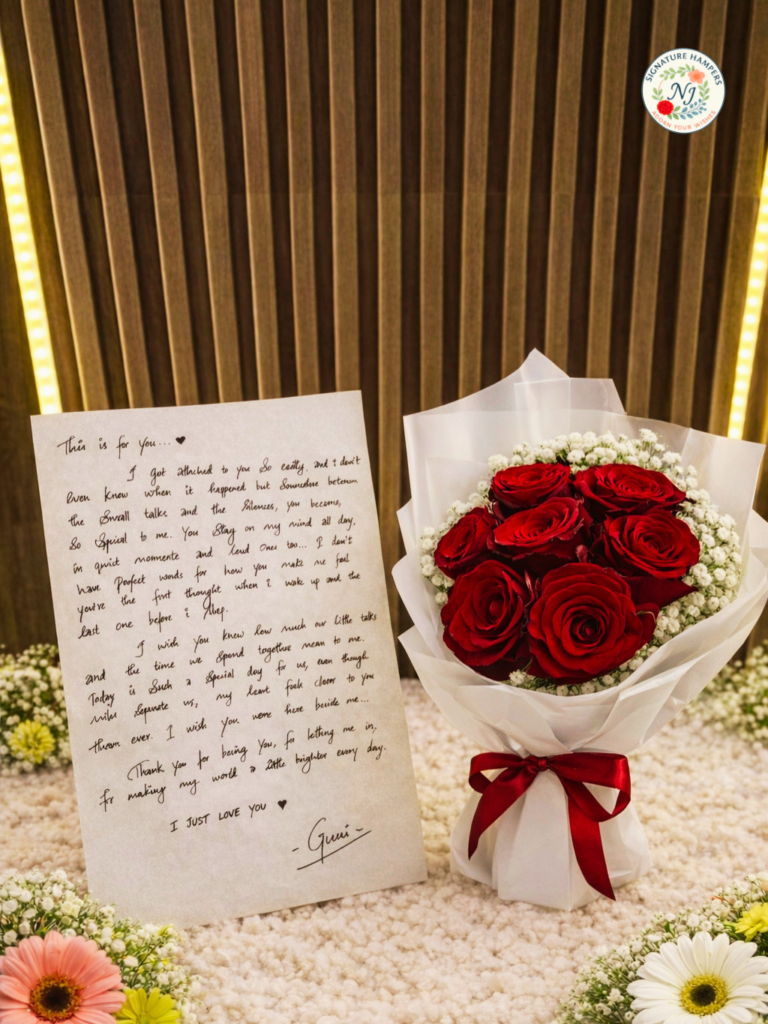 SIGNATURE HAMPERS
NJ
ADORN YOUR WISHES
This is for you... ♥
I got attached to you so easily, and i don't
even know when it happened but Somewhere between
the Small talks and the Silences, you became,
So Special to me. You Stay on my mind all day.
in quiet moments and loud ones too... I don't
have Perfect words for how you make me feel
you're the first thought when i wake up and the
last one before i Sleep.
I wish you knew how much our little talks
and the time we Spend together mean to me.
Today is Such a Special day for us, even though
miles Separate us, my heart feels closer to you
than ever. I wish you were here beside me...
Thank you for being You, for letting me in,
for making my world a little brighter every day.
I JUST LOVE YOU ♥